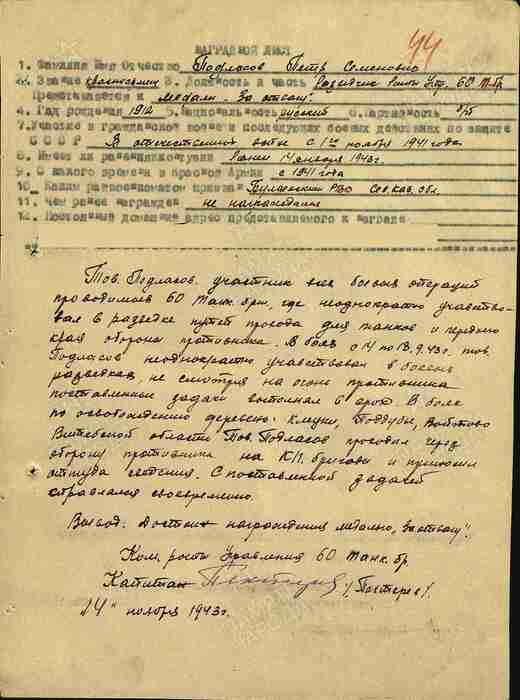 44
НАГРАДНОЙ ЛИСТ
1. Фамилия Имя Отчество Подласов Петр Семенович
2. Звание красноармеец 3. Должность и часть Разведчик Роты Упр. 60 Т.Бр
Представляется к медали "За отвагу".
4. Год рождения 1912 5. Национальность русский 6. Партийность б/п
7. Участие в гражданской войне и последующих боевых действиях по защите
СССР В отечественной войне с 1го ноября 1941 года
8. Имеет ли ранения и контузии Ранен 14 января 1943г.
9. С какого времени в Красной Армии с 1941 года
10. Каким райвоенкоматом призван РВО Сев.Кав. обл.
11. Чем ранее награжден не награжден
12. Постоянный домашний адрес представляемого к награде
Тов. Подласов участник всех боевых операций
проводимых 60 Танк. бриг, где неоднократно участво-
вал в разведке путей прохода для танков и переднего
края обороны противника. В боях с 4 по 13.9.43г. тов.
Подласов неоднократно участвовал в боевых
разведках, не смотря на огонь противника
поставленные задачи выполнял в срок. В боях
по освобождению деревень: Поддубы,
Витебской области Тов. Подласов проходил через
оборону противника на К.П. бригады и приносил
оттуда сведения. С поставленной задачей
справлялся своевременно.
Вывод: Достоин награждения медалью "За отвагу".
Ком. роты Управления 60 Танк. бр.
Капитан
"14" ноября 1943г.